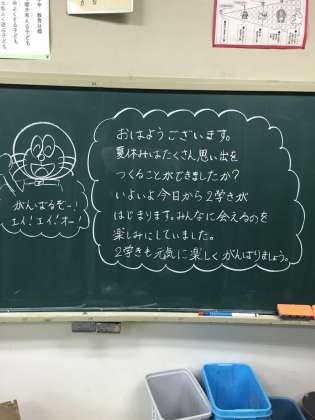 おはようございます。
夏休みはたくさん思い出を
つくることができましたか?
いよいよ今日から2学きが
はじまります。みんなに会えるのを
楽しみにしていました。
2学きも元気に楽しくがんばりましょう。
がんばるぞー!
エイ!エイ!オー!